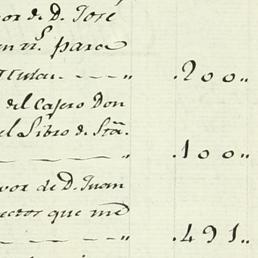 or de D. José
en rs. para
titular. — — — " .200..
del Cajero Don
el Libro de Sta.
" .100..
vor de D. Juan
ector que me
" .491..